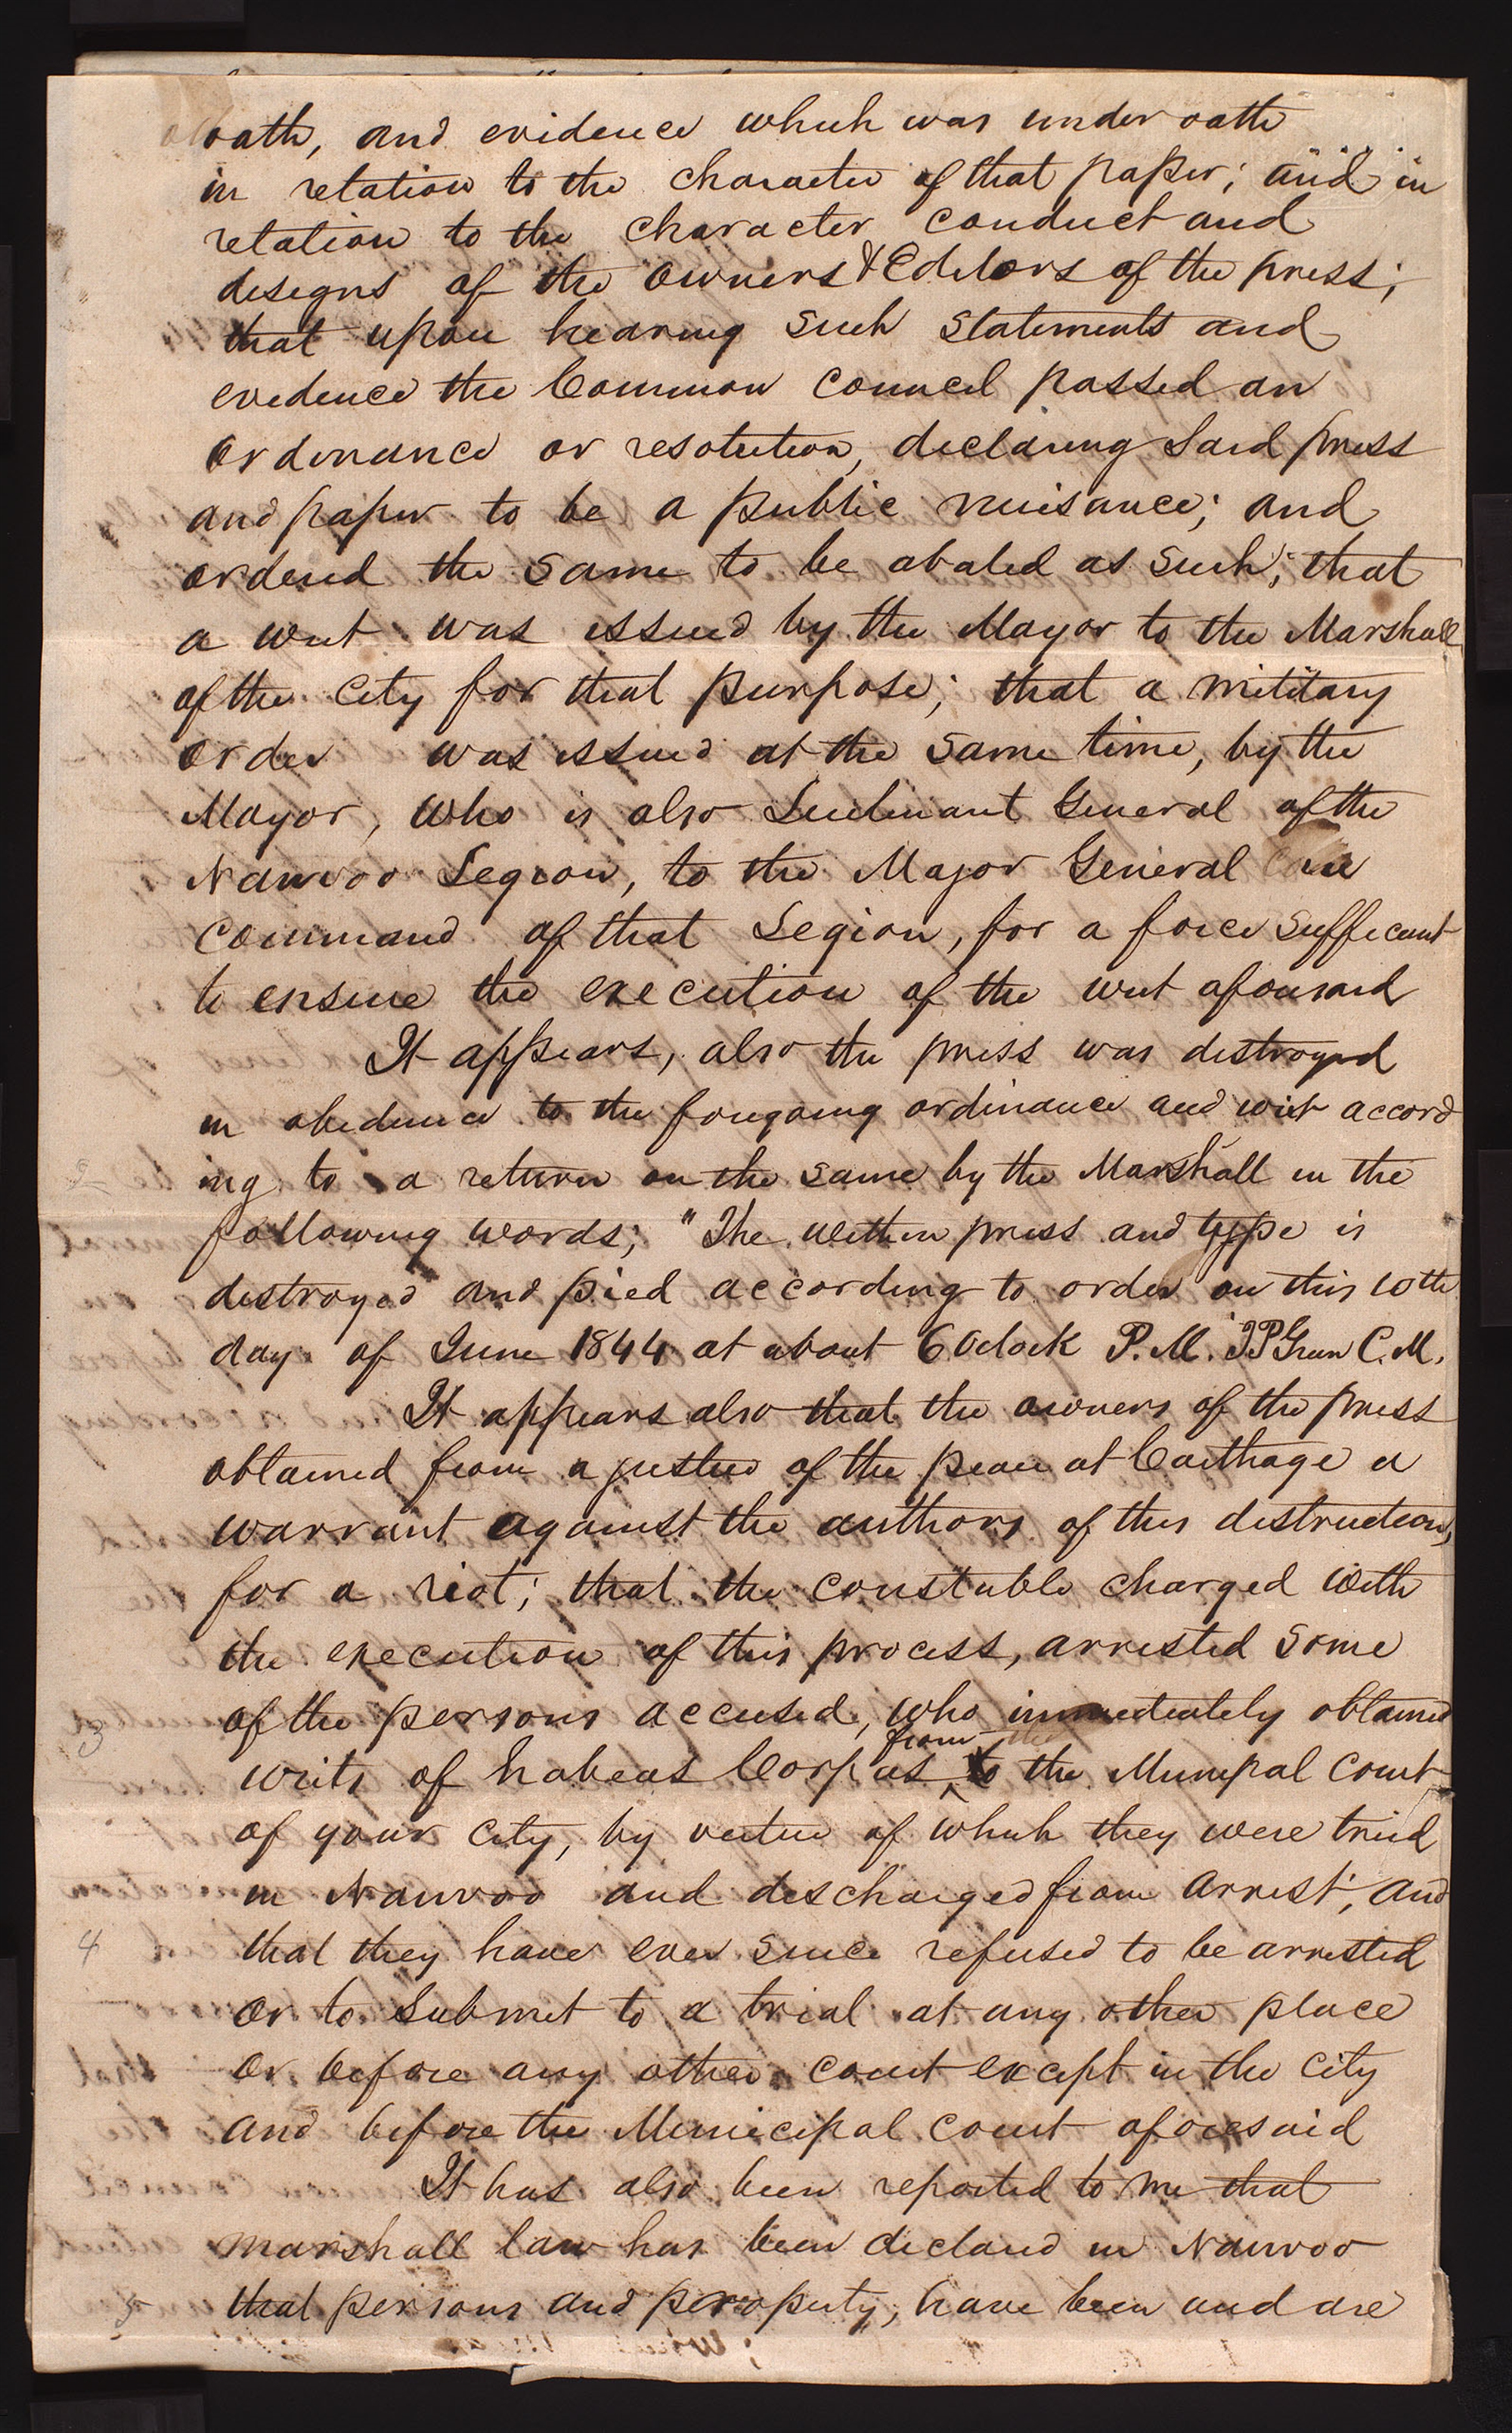 oath, and evidence which was under oath
in relation to the character of that paper; and in
relation to the character conduct and
designs of the owners & Editors of the press;
that upon hearing such statements and
evidence the Common Council passed an
ordinance or resolution, declaring said press
and paper to be a public nuisance; and
ordered the same to be abated as such; that
a writ was issued by the Mayor to the Marshall
of the City for that purpose; that a military
order was issued at the same time, by the
Mayor, who is also Lieutenant General of the
Nauvoo Legion, to the Major General in
command of that Legion, for a force sufficient
to ensure the execution of the writ aforesaid
It appears, also the press was destroyed
in obedience to the foregoing ordinance and writ accord
ing to a return on the same by the Marshall in the
following words; "The within press and type is
destroyed and pied according to order on this 10th
day of June 1844 at about 6 Oclock P.M. J P Green C.M.
It appears also that the owners of the press
obtained from a justice of the peace at Carthage a
warrant against the authors of this destruction,
for a riot; that the constable charged with
the execution of this process, arrested some
3 of the persons accused, who immediately obtained
from
writs of habeas Corpus to the Municpal Court
of your City, by virtue of which they were tried
in Nauvoo and discharged from arrest; and
4 that they have ever since refused to be arrested
or to submit to a trial at any other place
or before any other court except in the City
and before the Municipal court aforesaid
It has also been reported to me that
marshall law has been declared in Nauvoo
5 that persons and property, have been and are